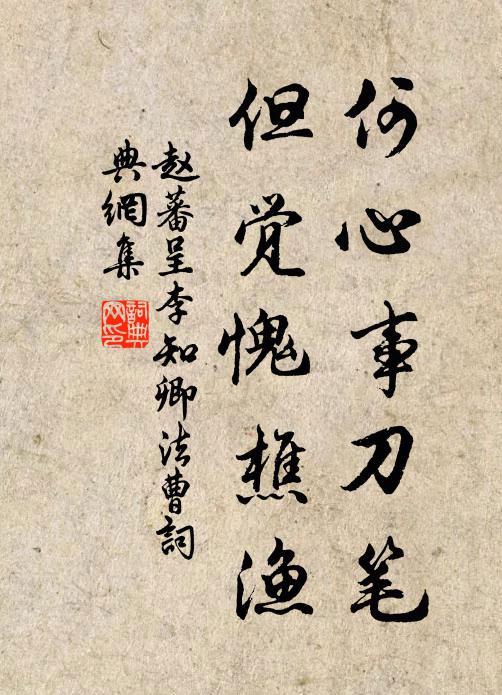 何心事刀笔
但觉愧樵渔
赵蕃呈李知卿法曹詞
典網集
詞典
网印